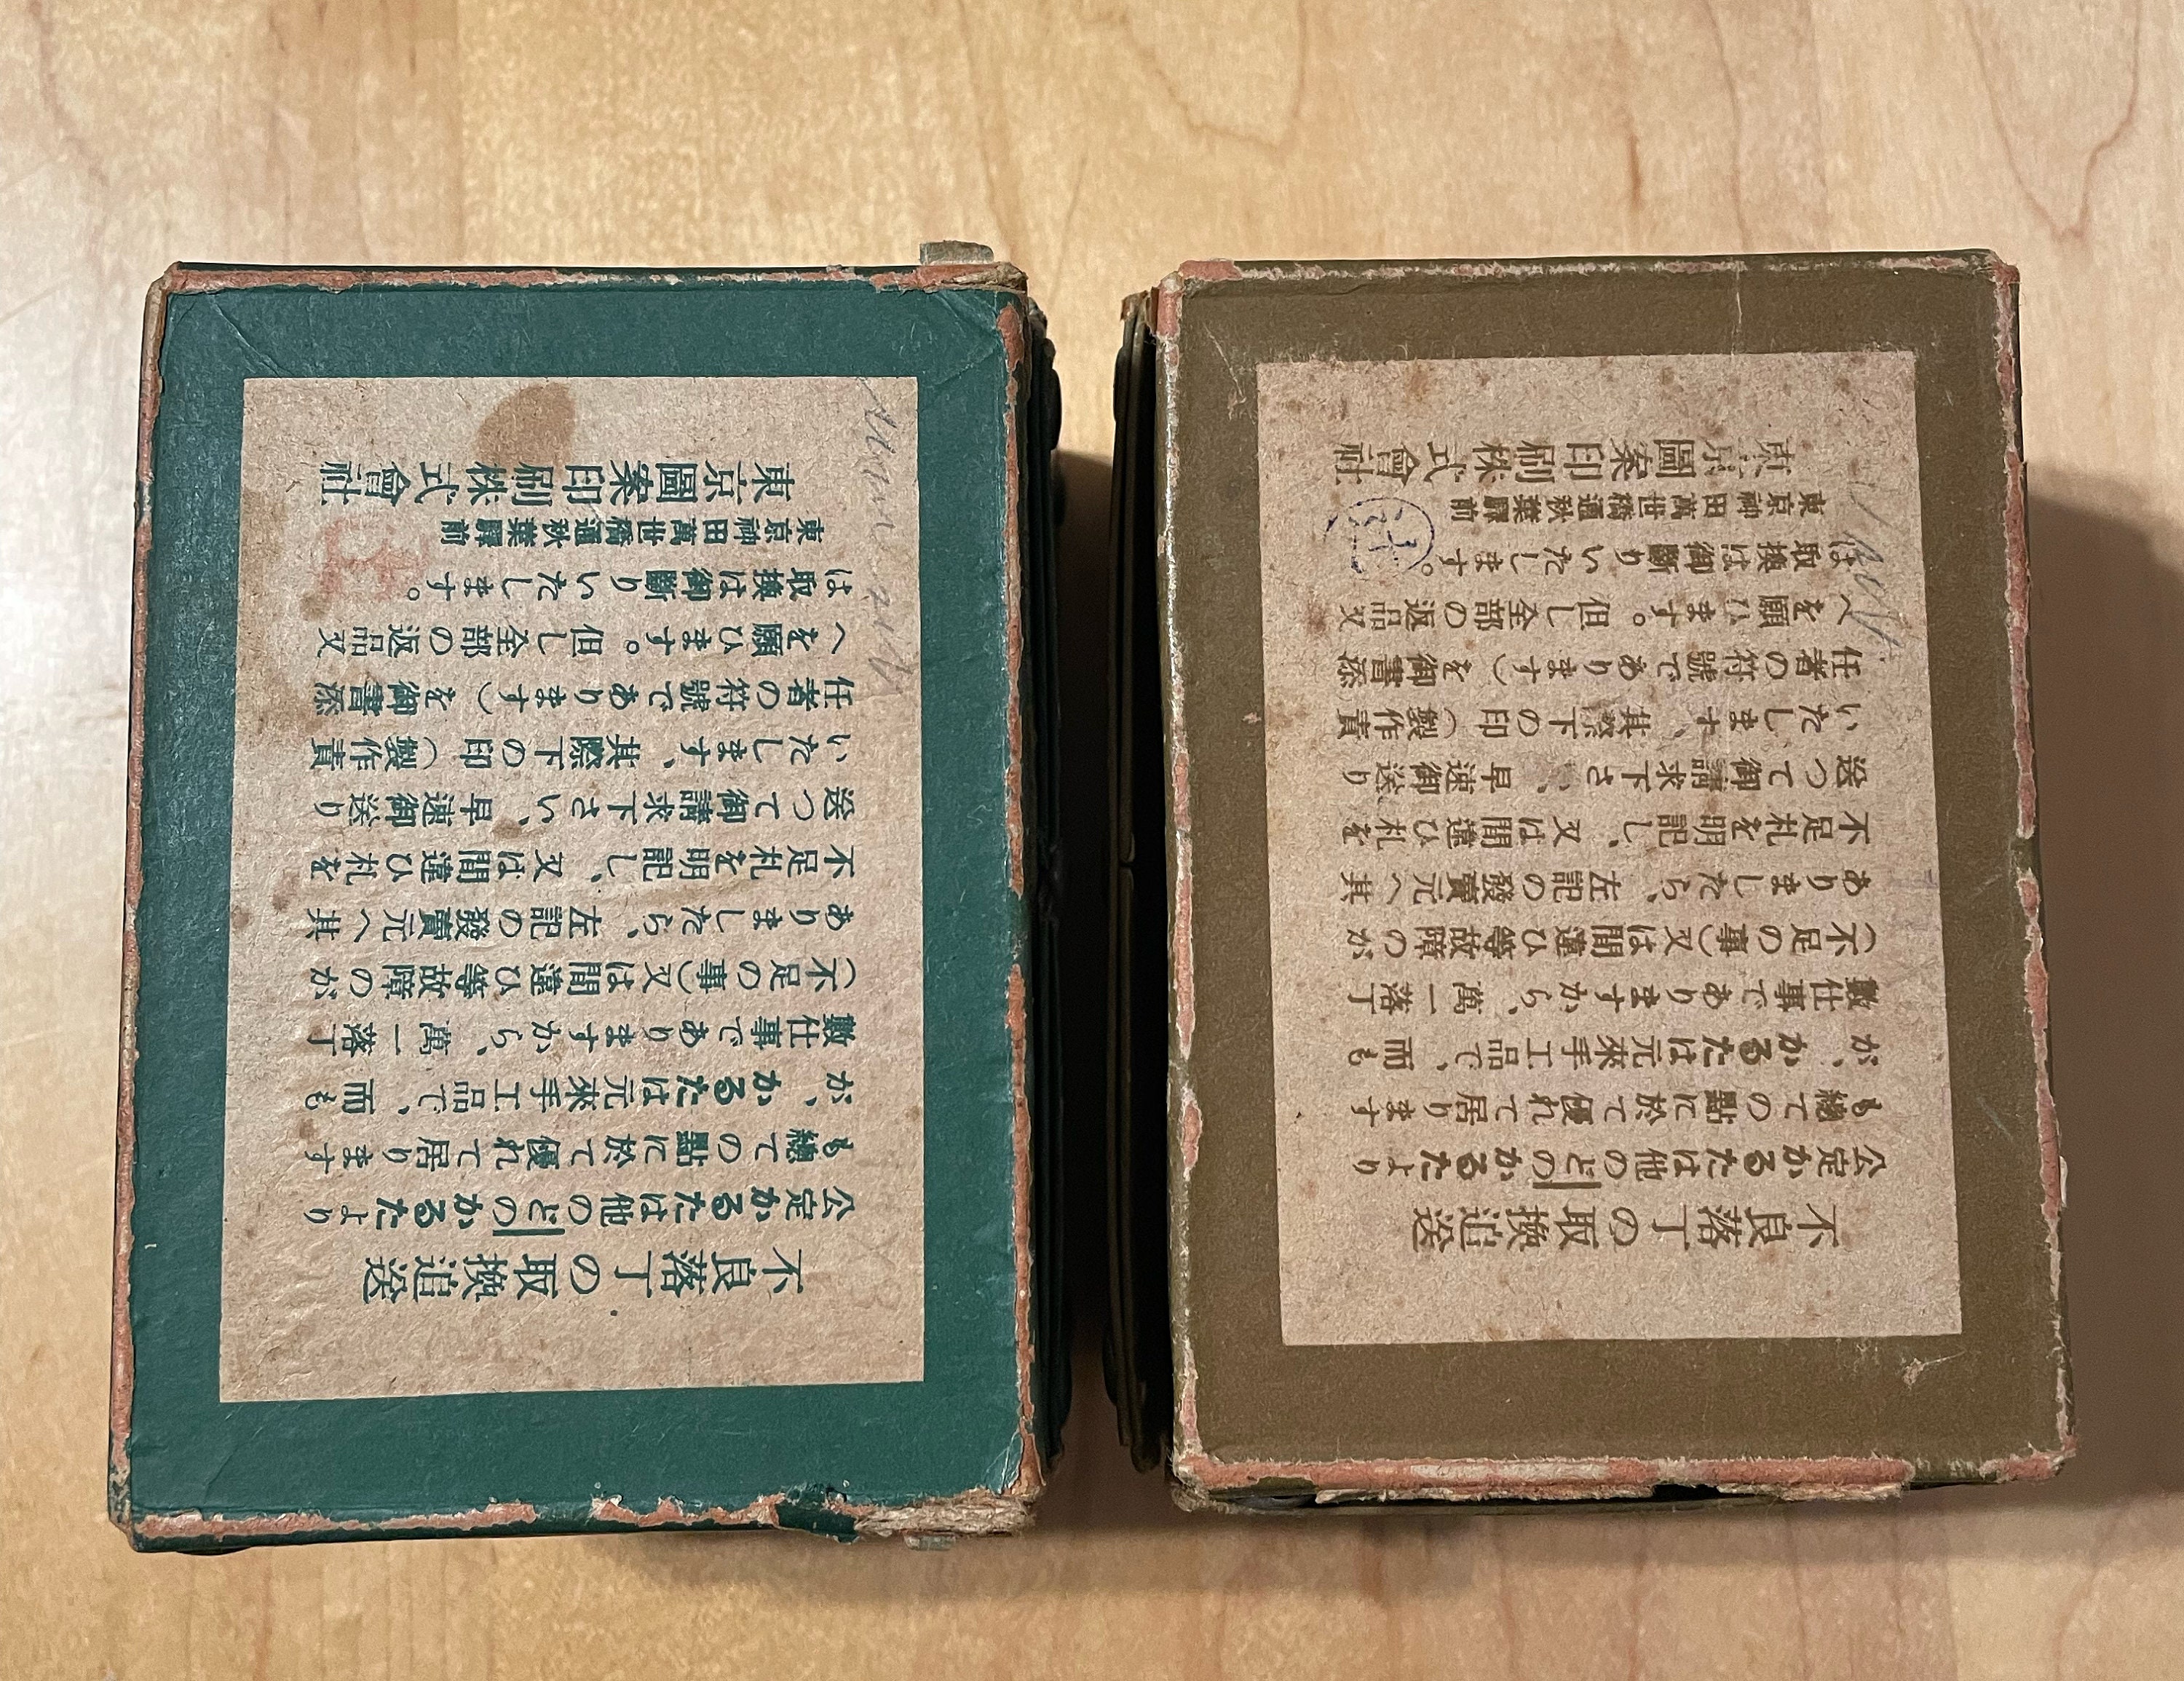 不良落丁の取換追送
公定かるたは他のどのかるたより
も總ての點に於て優れて居ります
が、かるたは元來手工品で、而も
數仕事でありますから、萬一落丁
(不足の事)又は間違ひ等故障のが
ありましたら、左記の發賣元へ其
不足札を明記し、又は間違ひ札を
送つて御請求下さい、早速御送り
いたします、其際下の印(製作責
任者の符號であります)を御書添
へを願ひます。但し全部の返品又
は取換は御斷りいたします。
東京神田萬世橋通秋葉驛前
東京圖案印刷株式會社
不良落丁の取換追送
公定かるたは他のどのかるたより
も總ての點に於て優れて居ります
が、かるたは元來手工品で、而も
數仕事でありますから、萬一落丁
(不足の事)又は間違ひ等故障のが
ありましたら、左記の發賣元へ其
不足札を明記し、又は間違ひ札を
送つて御請求下さ、早速御送り
いたします、其際下の印(製作責
任者の符號であります)を御書添
へを願ひます。但し全部の返品又
は取換は御斷りいたします。
東京神田萬世橋通秋葉驛前
東京圖案印刷株式會社